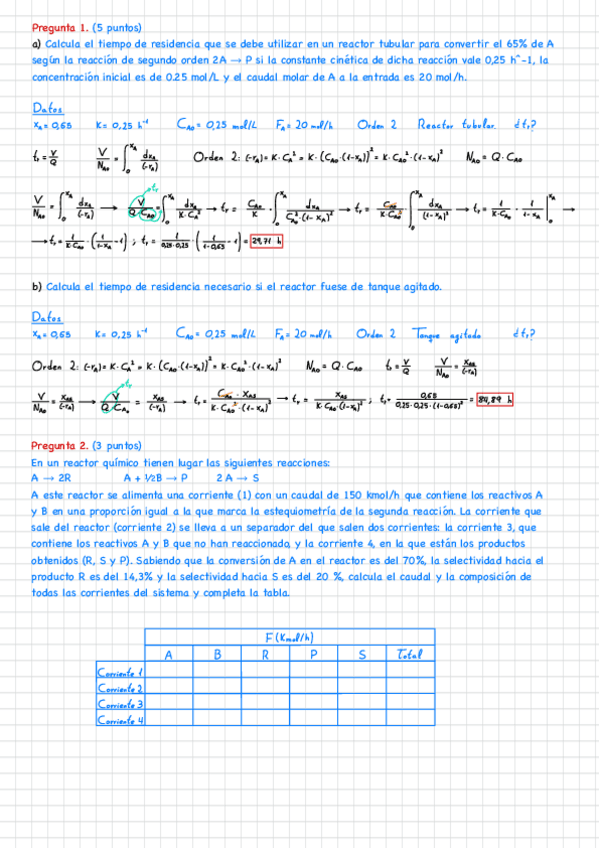 Pregunta 1. (5 puntos)
a) Calcula el tiempo de residencia que se debe utilizar en un reactor tubular para convertir el 65% de A
según la reacción de segundo orden 2A → P si la constante cinética de dicha reacción vale 0,25 h^-1, la
concentración inicial es de 0.25 mol/L y el caudal molar de A a la entrada es 20 mol/h.
Datos
xA = 0,65 K = 0,25 h⁻¹ CAo = 0,25 mol/L FA = 20 mol/h Orden 2 Reactor tubular. ¿tr?
tr = V/Q V/NAo = ∫₀^xA dxA/(-rA) Orden 2: (-rA) = K·CA² = K·(CAo·(1-xA))² = K·CAo²·(1-xA)² NAo = Q·CAo
V/NAo = ∫₀^xA dxA/(-rA) → V/(Q·CAo) = ∫₀^xA dxA/(K·CA²) → tr = CAo/K · ∫₀^xA dxA/(CAo²·(1-xA)²) → tr = CAo/(K·CAo²) ∫₀^xA dxA/(1-xA)² → tr = 1/(K·CAo) · 1/(1-xA) |₀^xA →
→ tr = 1/(K·CAo) · (1/(1-xA) - 1) ; tr = 1/(0,25·0,25) · (1/(1-0,65) - 1) = 29,71 h
b) Calcula el tiempo de residencia necesario si el reactor fuese de tanque agitado.
Datos
xA = 0,65 K = 0,25 h⁻¹ CAo = 0,25 mol/L FA = 20 mol/h Orden 2 Tanque agitado ¿tr?
Orden 2: (-rA) = K·CA² = K·(CAo·(1-xA))² = K·CAo²·(1-xA)² NAo = Q·CAo tr = V/Q V/NAo = xAS/(-rA)
V/NAo = xAS/(-rA) → V/(Q·CAo) = xAS/(-rA) → tr = CAo·xAS/(K·CAo²·(1-xA)²) → tr = xAS/(K·CAo·(1-xA)²) ; tr = 0,65/(0,25·0,25·(1-0,65)²) = 84,89 h
Pregunta 2. (3 puntos)
En un reactor químico tienen lugar las siguientes reacciones:
A → 2R A + ½B → P 2 A → S
A este reactor se alimenta una corriente (1) con un caudal de 150 kmol/h que contiene los reactivos A
y B en una proporción igual a la que marca la estequiometría de la segunda reacción. La corriente que
sale del reactor (corriente 2) se lleva a un separador del que salen dos corrientes: la corriente 3, que
contiene los reactivos A y B que no han reaccionado, y la corriente 4, en la que están los productos
obtenidos (R, S y P). Sabiendo que la conversión de A en el reactor es del 70%, la selectividad hacia el
producto R es del 14,3% y la selectividad hacia S es del 20 %, calcula el caudal y la composición de
todas las corrientes del sistema y completa la tabla.
F (Kmol/h)
A B R P S Total
Corriente 1
Corriente 2
Corriente 3
Corriente 4